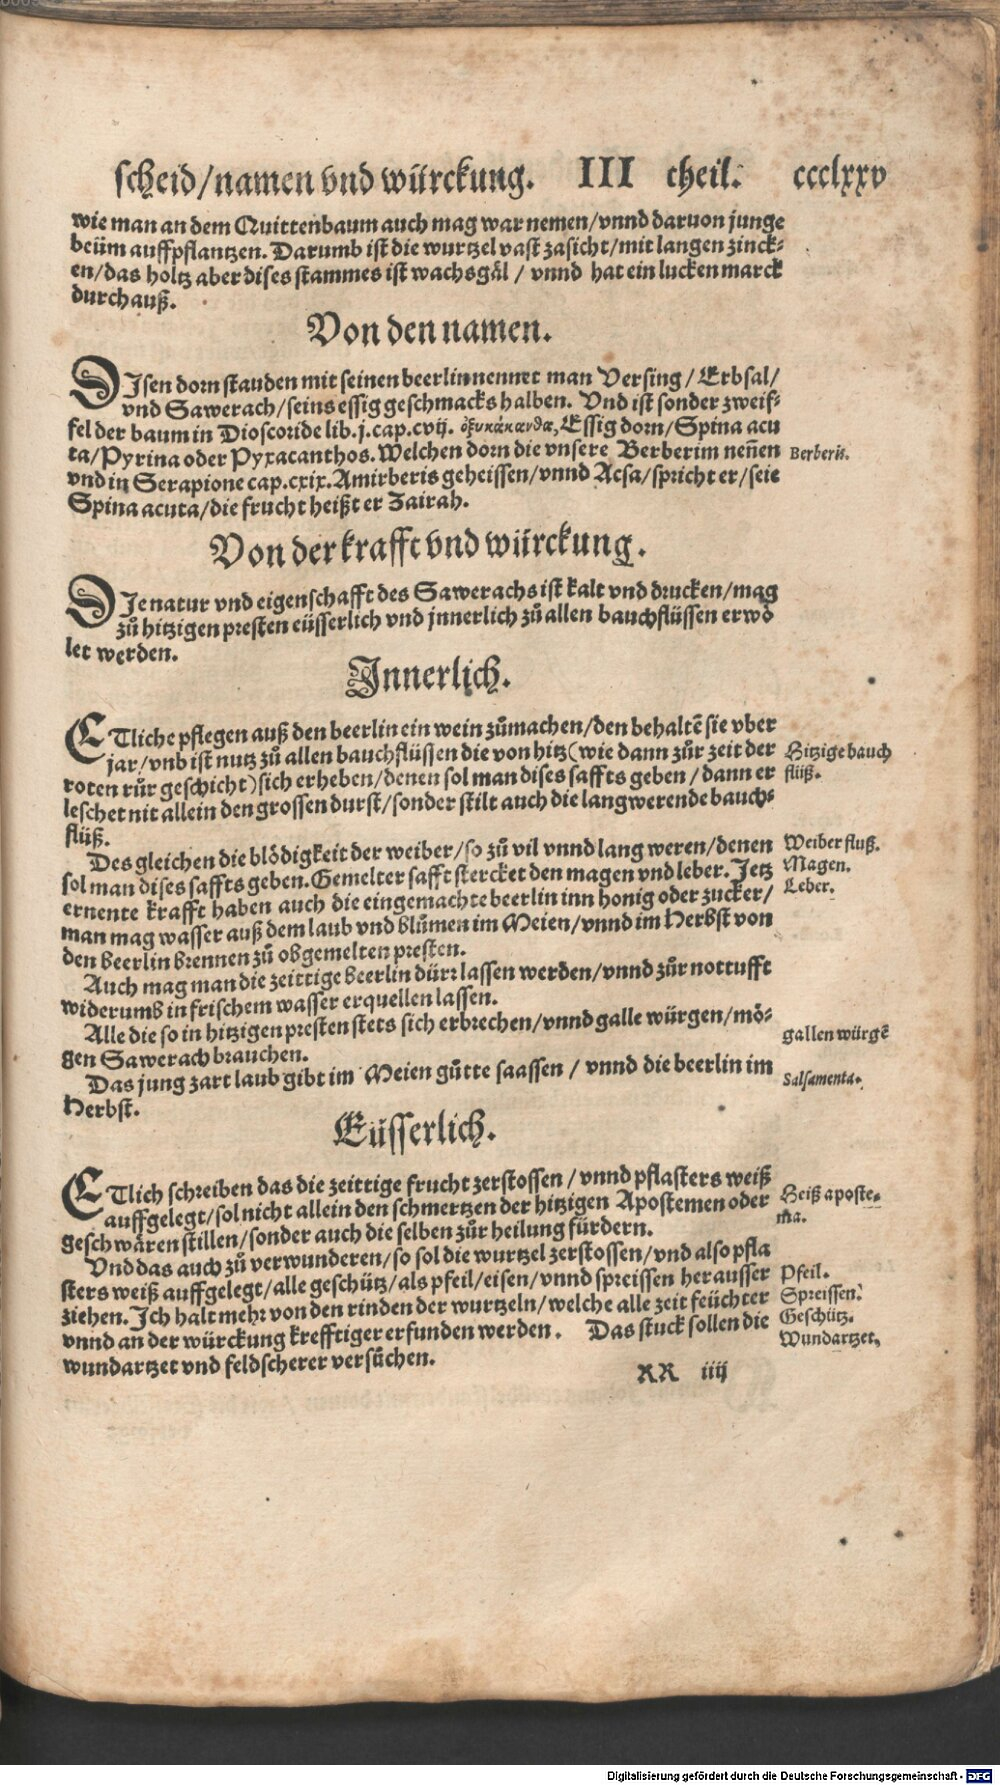 scheid/namen vnd würckung. III theil. ccclxxv
wie man an dem Quittenbaum auch mag war nemen/vnnd daruon junge
beüm auffpflantzen. Darumb ist die wurtzel vast zasicht/mit langen zinck-
en/das holtz aber dises stammes ist wachsgäl / vnnd hat ein lucken marck
durchauß.
Von den namen.
DIsen dorn stauden mit seinen beerlin nennet man Versing/ Erbsal/
vnd Sawerach/seins essig geschmacks halben. Vnd ist sonder zweif-
fel der baum in Dioscoride lib.j.cap.cvij. ὀξυκάκανθα, Essig dorn/Spina acu
ta/Pyrina oder Pyxacanthos. Welchen dorn die vnsere Berberim neñen
Berberis.
vnd in Serapione cap.cxix. Amirberis geheissen/vnnd Acsa/spricht er/seie
Spina acuta/die frucht heißt er Zairah.
Von der krafft vnd würckung.
DIe natur vnd eigenschafft des Sawerachs ist kalt vnd drucken/mag
zů hitzigen presten eüsserlich vnd jnnerlich zů allen bauchflüssen erwö
let werden.
Innerlich.
ETliche pflegen auß den beerlin ein wein zůmachen/den behaltẽ sie vber
jar/vnb ist nutz zů allen bauchflüssen die von hitz (wie dann zůr zeit der
Hitzige bauch
roten růr geschicht) sich erheben/denen sol man dises saffts geben / dann er
flüß.
leschet nit allein den grossen durst/sonder stilt auch die langwerende bauch-
flüß.
Des gleichen die blödigkeit der weiber/so zů vil vnnd lang weren/denen
Weiber fluß.
sol man dises saffts geben. Gemelter safft stercket den magen vnd leber. Jetz
Magen.
ernente krafft haben auch die eingemachte beerlin inn honig oder zucker/
Leber.
man mag wasser auß dem laub vnd blůmen im Meien/vnnd im Herbst von
den beerlin brennen zů obgemelten presten.
Auch mag man die zeittige beerlin dürr lassen werden/vnnd zůr nottufft
widerumb in frischem wasser erquellen lassen.
Alle die so in hitzigen presten stets sich erbrechen/vnnd galle würgen/mö-
gallen würgẽ
gen Sawerach brauchen.
Das jung zart laub gibt im Meien gůtte saassen / vnnd die beerlin im
Salsamenta.
Herbst.
Eüsserlich.
ETlich schreiben das die zeittige frucht zerstossen / vnnd pflasters weiß
auffgelegt/sol nicht allein den schmertzen der hitzigen Apostemen oder
Heiß aposte-
geschwären stillen/sonder auch die selben zůr heilung fürdern.
ma.
Vnd das auch zů verwunderen/so sol die wurtzel zerstossen/vnd also pfla
sters weiß auffgelegt/alle geschütz/als pfeil/eisen/vnnd spreissen herausser
Pfeil.
ziehen. Ich halt mehr von den rinden der wurtzeln/welche alle zeit feüchter
Spreissen.
vnnd an der würckung krefftiger erfunden werden. Das stuck sollen die
Geschütz.
wundartzet vnd feldscherer versůchen.
Wundartzet.
RR iiij
Digitalisierung gefördert durch die Deutsche Forschungsgemeinschaft - DFG